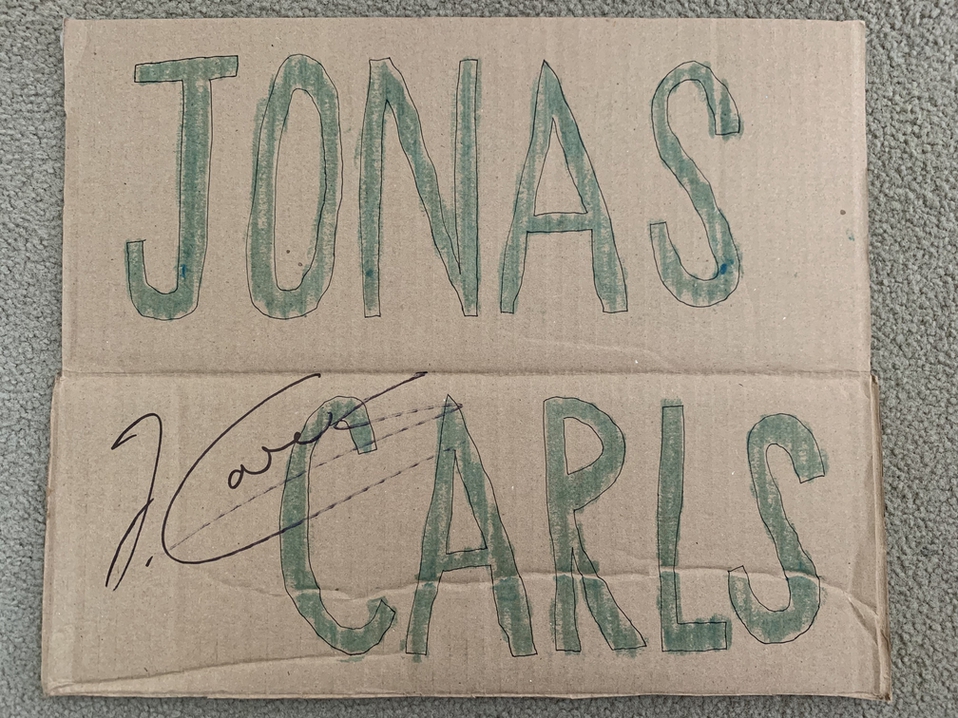 JONAS
CARLS
J. Carls